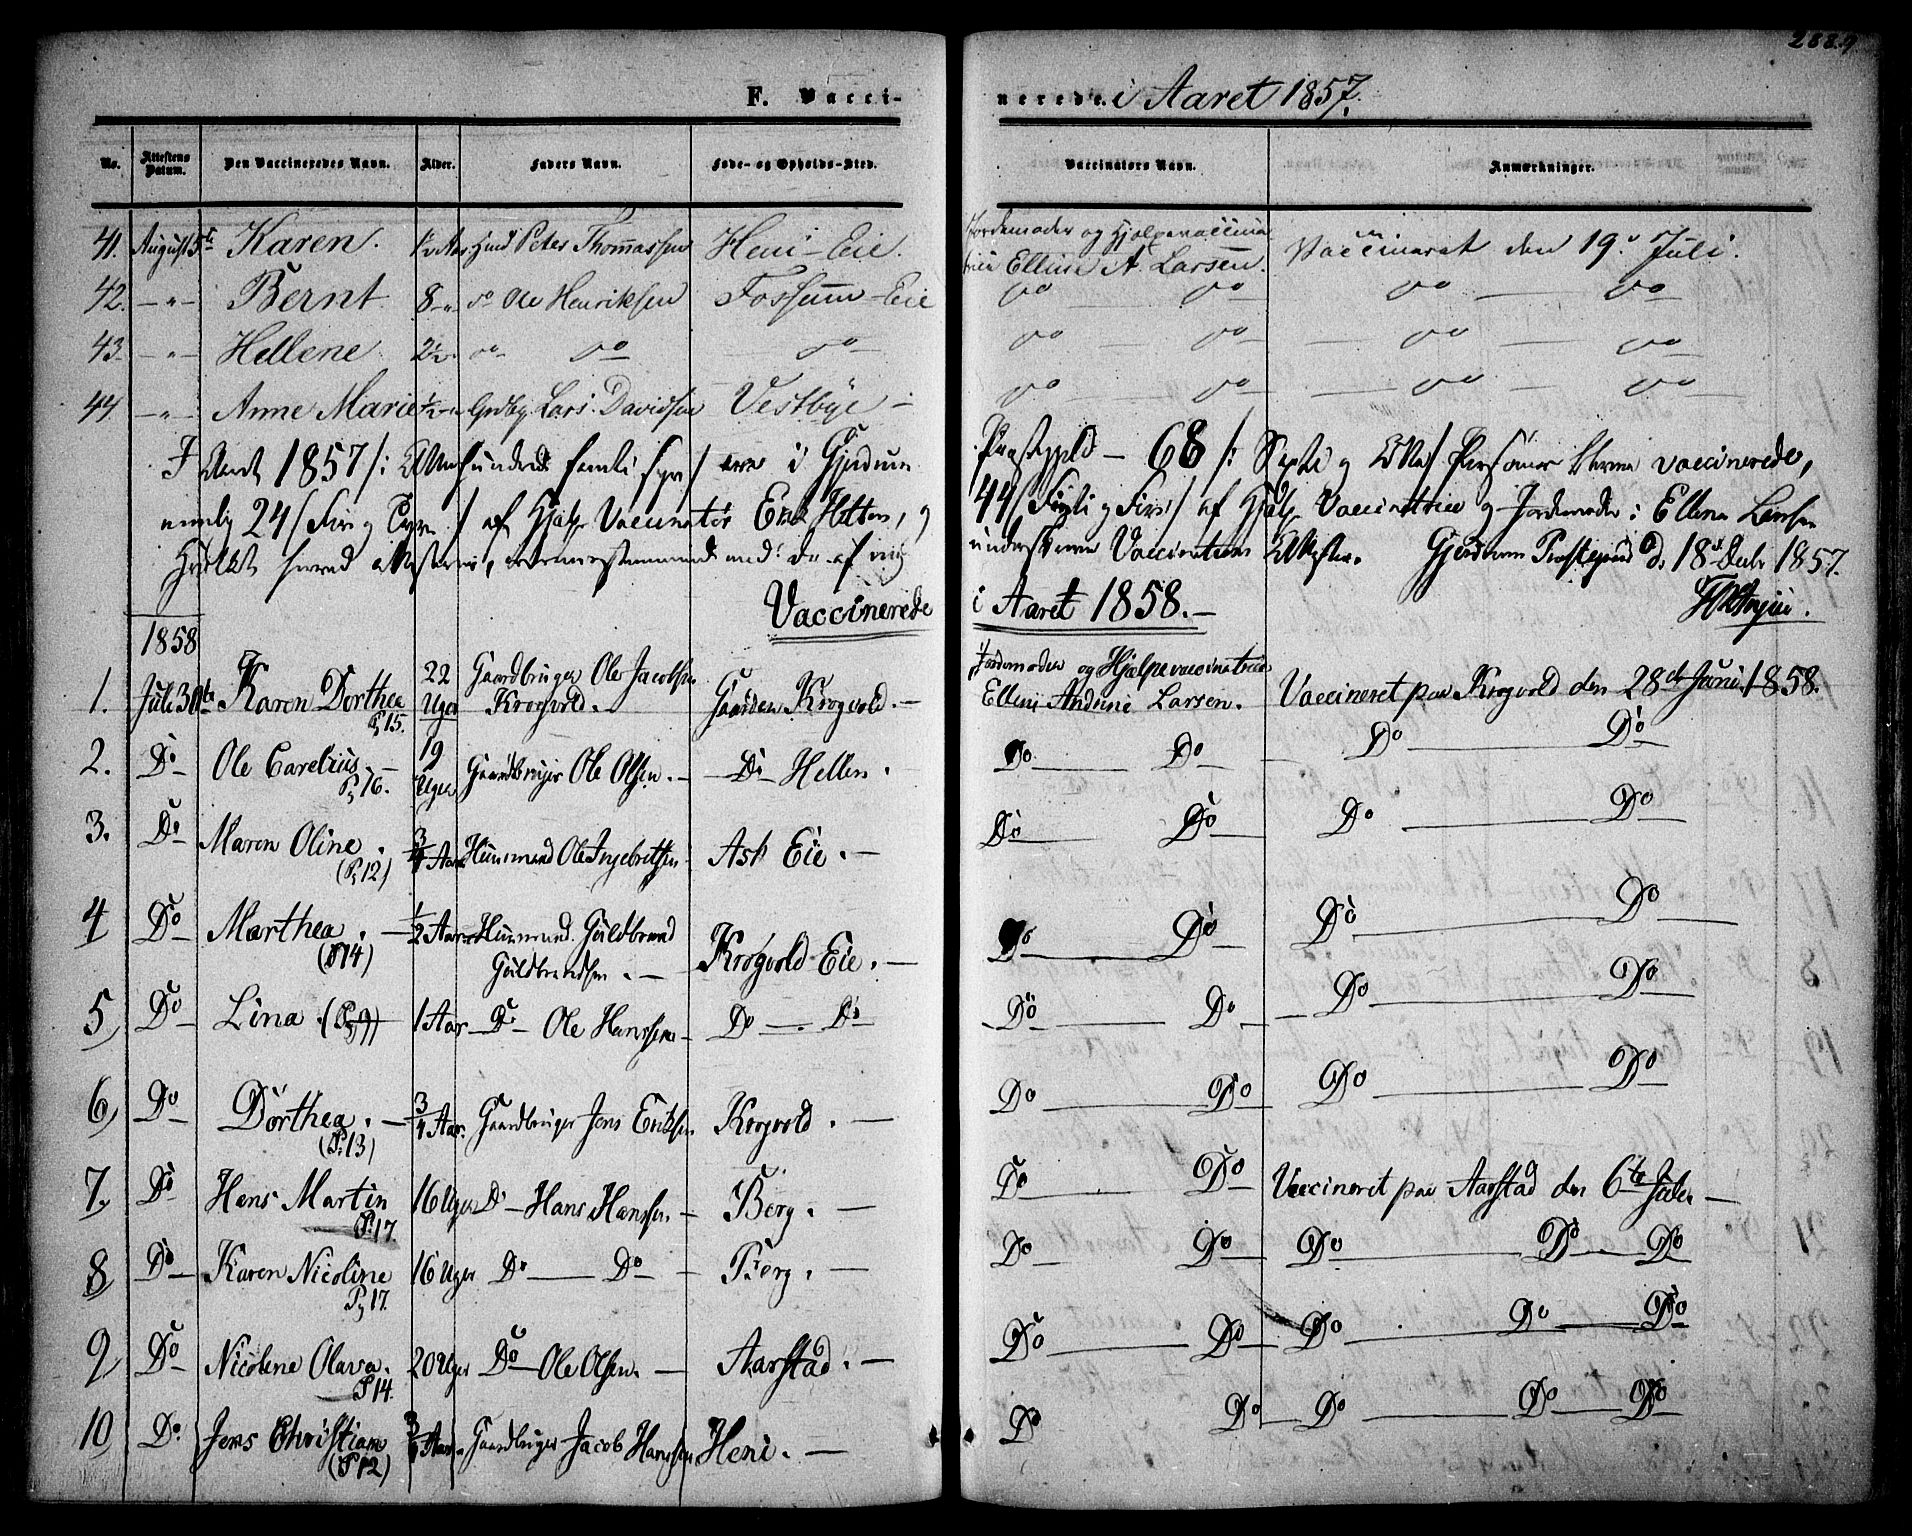 2889
F. Vacci-
nerede. i Aaret 1857.
No.
Attestens Datum.
Den Vaccineredes Navn.
Alder.
Faders Navn.
Føde- og Opholds-Sted.
Vaccinators Navn.
Anmærkninger.
41. August 5te Karen. 1/2 Aar Husd Peter Thomassen Heni-Eie. Jordemoder og Hjelpevaccina-
trice Elline A. Larsen. Vaccineret den 19. Juli.
42. — " — Bernt 8 — " do Ole Henriksen Fossum-Eie do do do — do
43. — " — Hellene 2 1/2 do do do do — do — do — do
44. — " — Anne Marie 1/2 — " Grdbg. Lars Davidsen Vestbye — do — do — do — do
I Aaret 1857 /: / ere i Gjerdrum
Præstegjeld — 68 /: Sexti og Otte / Personer blevne vaccinerede,
nemlig 24 / Fire og Tyve / af Hjelpe Vaccinatør Erik Hetten, og
44 / Firti og Fire / af Hjelpe Vaccinatrice og Jordemoder: Elline Larsen
Hvilket herved attesteres, overensstemmende med de af mig
underskrevne Vaccinations Attester. Gjerdrum Præstegaard d. 18de Decbr 1857.
Vaccinerede
i Aaret 1858. —
1858
1. Juli 30te Karen Dorthea P. 15. 22 Uger Gaardbruger Ole Jacobsen Krogvold. Gaarden Krogvold. — Jordemoder og Hjelpevaccinatrice
Elline Andrine Larsen. Vaccineret paa Krogvold den 28de Juni 1858.
2. Do — Ole Carelius. — Pg 16. 19 Uger Gaardbruger Ole Olsen. — Do Hellen. Do — Do — Do — Do
3. Do — Maren Oline. (Pg 12) 3/4 Aar Huusmand Ole Ingebretsen Ask Eie. — Do — Do Do — Do
4 Do — Marthea. — (P14) 1/2 Aar Huusmand Guldbrand
Guldbrandsen. — Krogvold Eie. — Do — Do — Do — Do
5) Do — Lina. (Pg 9) 1 Aar Do — Ole Hanssen — Do — Do Do — Do — Do — Do
6) Do Dorthea. — (P. 13) 3/4 Aar. Gaardbruger Jens Eriksen Krogvold. — Do — Do Do — Do
7) Do Hans Martin P. 17. 16 Uger Do — Hans Hanssen. — Berg. — Do — Do Vaccineret paa Aarstad den 6te Julii —
8) Do — Karen Nicoline Pg 17. 16 Uger Do — Do — Berg. — Do — Do Do — Do — Do
9) Do Nicoline Olava. P 14. 20 Uger Do — Ole Olsen. — Aarstad. — Do — Do Do — Do — Do
10) Do. Jens Christian (P 12) 3/4 Aar Gaardbruger Jacob Hanssen Heni. — Do Do — Do — Do — Do